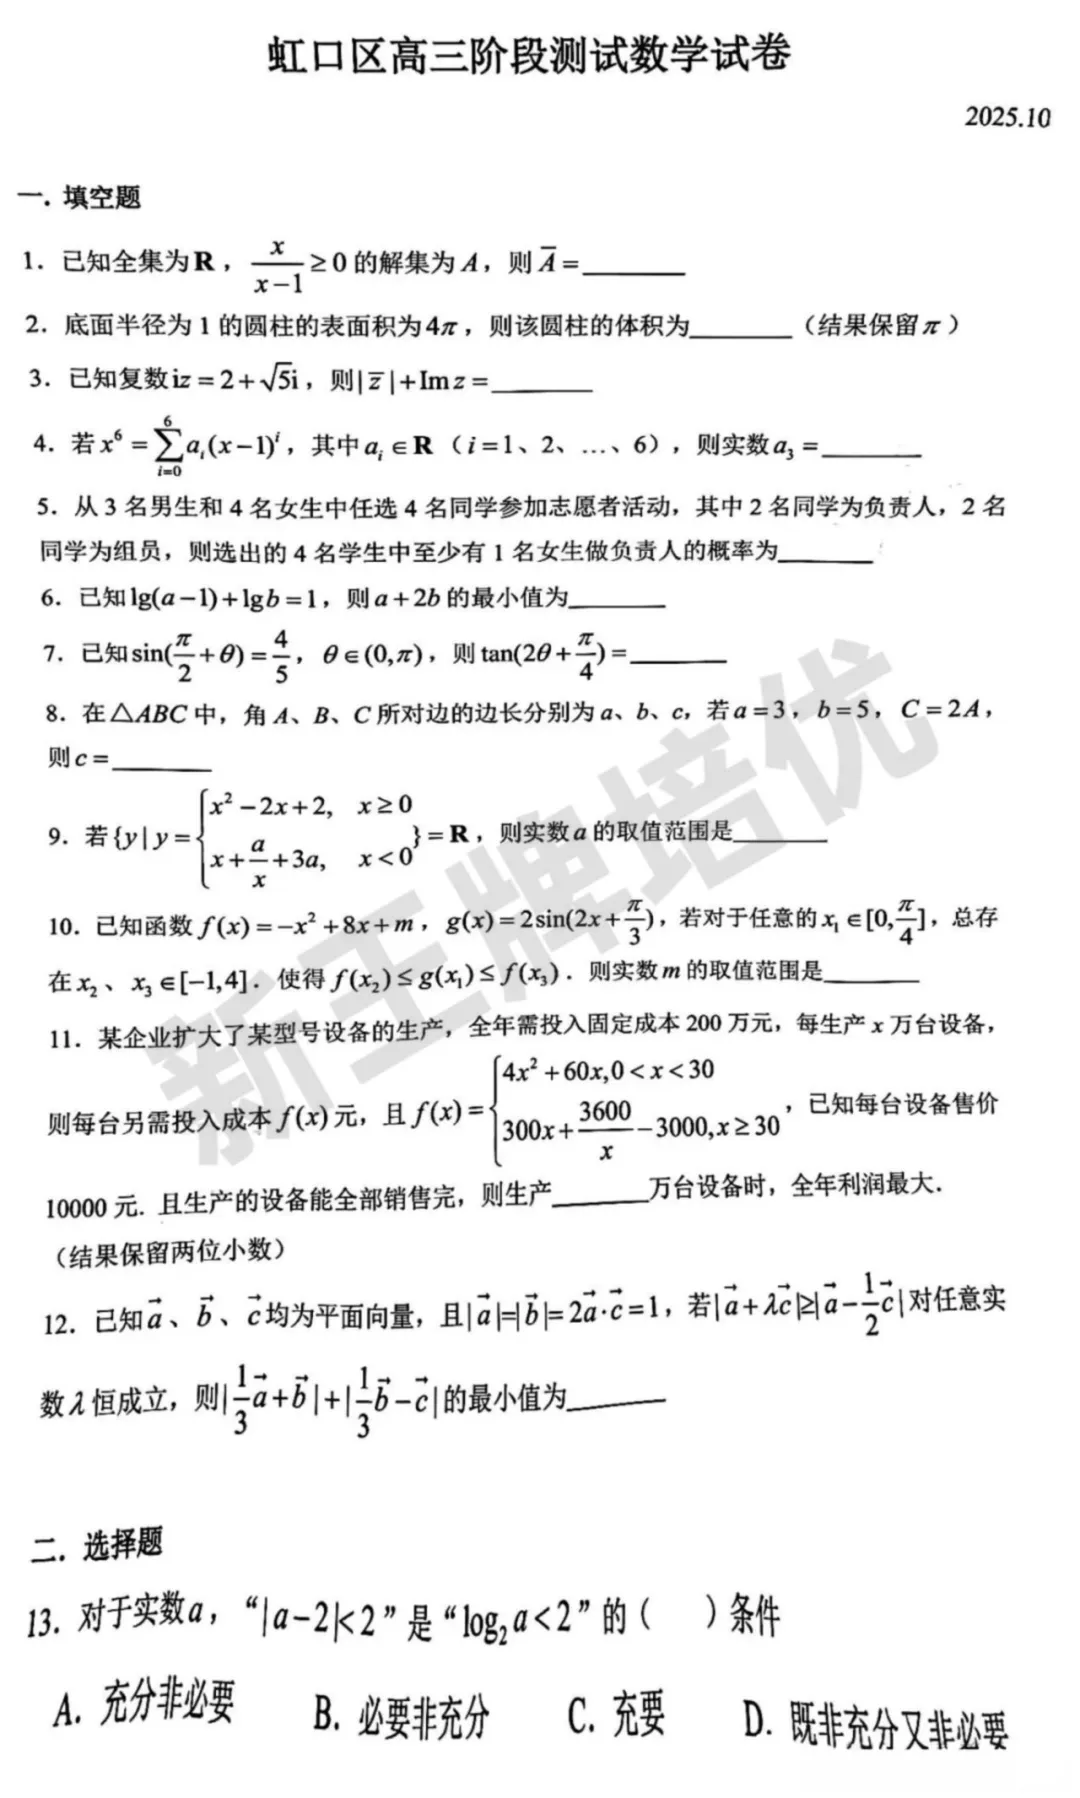 虹口区高三阶段测试数学试卷
2025.10
一. 填空题
1. 已知全集为 R，x/(x−1) ≥ 0 的解集为 A，则 A̅ = ________
2. 底面半径为 1 的圆柱的表面积为 4π，则该圆柱的体积为________（结果保留 π）
3. 已知复数 iz = 2 + √5i，则 |z̅| + Im z = ________
4. 若 x⁶ = ∑_{i=0}^{6} aᵢ(x−1)ⁱ，其中 aᵢ ∈ R（i=1、2、…、6），则实数 a₃ = ________
5. 从 3 名男生和 4 名女生中任选 4 名同学参加志愿者活动，其中 2 名同学为负责人，2 名
同学为组员，则选出的 4 名学生中至少有 1 名女生做负责人的概率为________
6. 已知 lg(a−1) + lg b = 1，则 a + 2b 的最小值为________
7. 已知 sin(π/2 + θ) = 4/5，θ ∈ (0,π)，则 tan(2θ + π/4) = ________
8. 在 △ABC 中，角 A、B、C 所对边的边长分别为 a、b、c，若 a = 3，b = 5，C = 2A，
则 c = ________
9. 若 {y | y = { x² − 2x + 2, x ≥ 0; x + a/x + 3a, x < 0 } = R，则实数 a 的取值范围是________
10. 已知函数 f(x) = −x² + 8x + m，g(x) = 2sin(2x + π/3)，若对于任意的 x₁ ∈ [0, π/4]，总存
在 x₂、x₃ ∈ [−1,4]．使得 f(x₂) ≤ g(x₁) ≤ f(x₃)．则实数 m 的取值范围是________
11. 某企业扩大了某型号设备的生产，全年需投入固定成本 200 万元，每生产 x 万台设备，
则每台另需投入成本 f(x) 元，且 f(x) = { 4x² + 60x, 0 < x < 30; 300x + 3600/x − 3000, x ≥ 30，已知每台设备售价
10000 元. 且生产的设备能全部销售完，则生产________万台设备时，全年利润最大.
（结果保留两位小数）
12. 已知 a⃗、b⃗、c⃗ 均为平面向量，且 |a⃗| = |b⃗| = 2a⃗·c⃗ = 1，若 |a⃗ + λc⃗| ≥ |a⃗ − 1/2 c⃗| 对任意实
数 λ 恒成立，则 |1/3 a⃗ + b⃗| + |1/3 b⃗ − c⃗| 的最小值为________
二. 选择题
13. 对于实数 a，“|a−2|<2”是“log₂a<2”的（ ）条件
A. 充分非必要 B. 必要非充分 C. 充要 D. 既非充分又非必要
新王牌培优